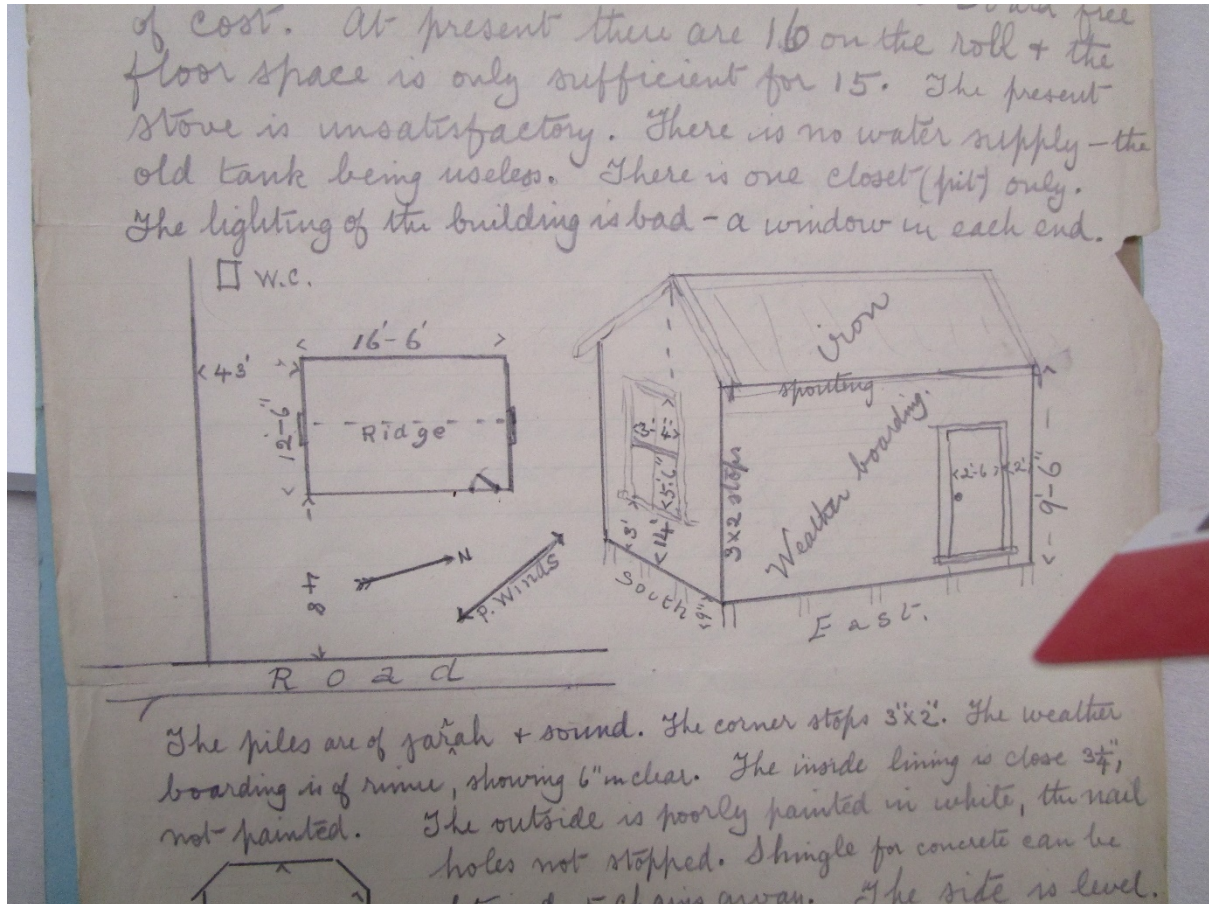 of cost. At present there are 16 on the roll & the
floor space is only sufficient for 15. The present
stove is unsatisfactory. There is no water supply – the
old tank being useless. There is one closet (pit) only.
The lighting of the building is bad – a window in each end.
W.C.
16'-6'
43'
12'-6"
Ridge
N
P. Winds
84
Road
iron
spouting
Weather boarding.
3'-4"
5'6"
3'
14'
3x2 stops
2'-6
2'
9'-6"
South
9"
East.
The piles are of jarrah & sound. The corner stops 3"x2". The weather
boarding is of rimu, showing 6" in clear. The inside lining is close 3¼",
not painted. The outside is poorly painted in white, the nail
holes not stopped. Shingle for concrete can be
chains away. The side is level.